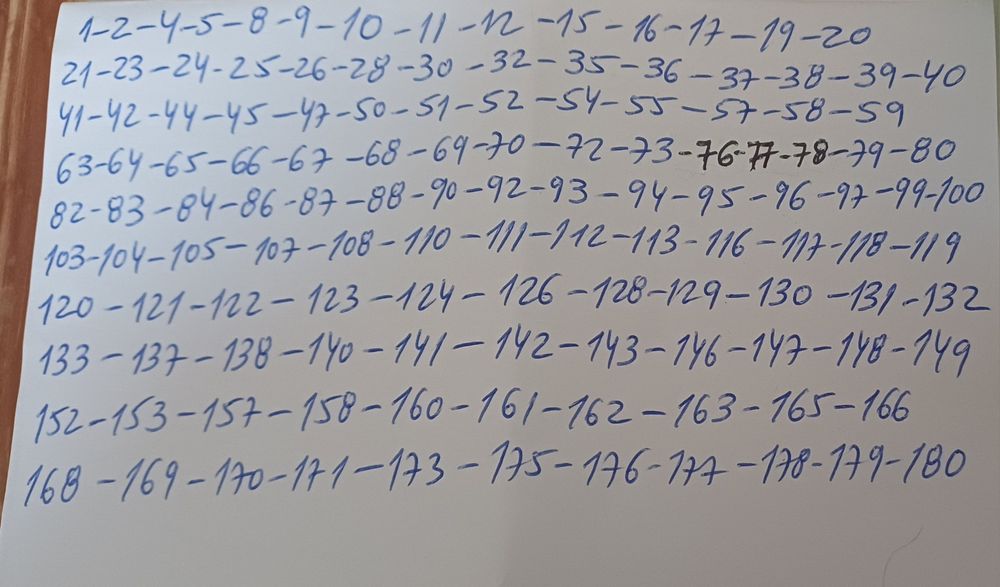 1-2-4-5-8-9-10-11-12-15-16-17-19-20
21-23-24-25-26-28-30-32-35-36-37-38-39-40
41-42-44-45-47-50-51-52-54-55-57-58-59
63-64-65-66-67-68-69-70-72-73-76-77-78-79-80
82-83-84-86-87-88-90-92-93-94-95-96-97-99-100
103-104-105-107-108-110-111-112-113-116-117-118-119
120-121-122-123-124-126-128-129-130-131-132
133-137-138-140-141-142-143-146-147-148-149
152-153-157-158-160-161-162-163-165-166
168-169-170-171-173-175-176-177-178-179-180